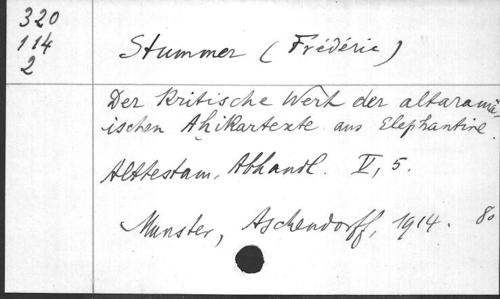 320
114
2
Stummer (Frédéric)
Der Kritische Wert der altaramä-
ischen Aḥikartexte aus Elephantine.
Alttestam. Abhandl. V, 5.
Munster, Aschendorff, 1914. 8o